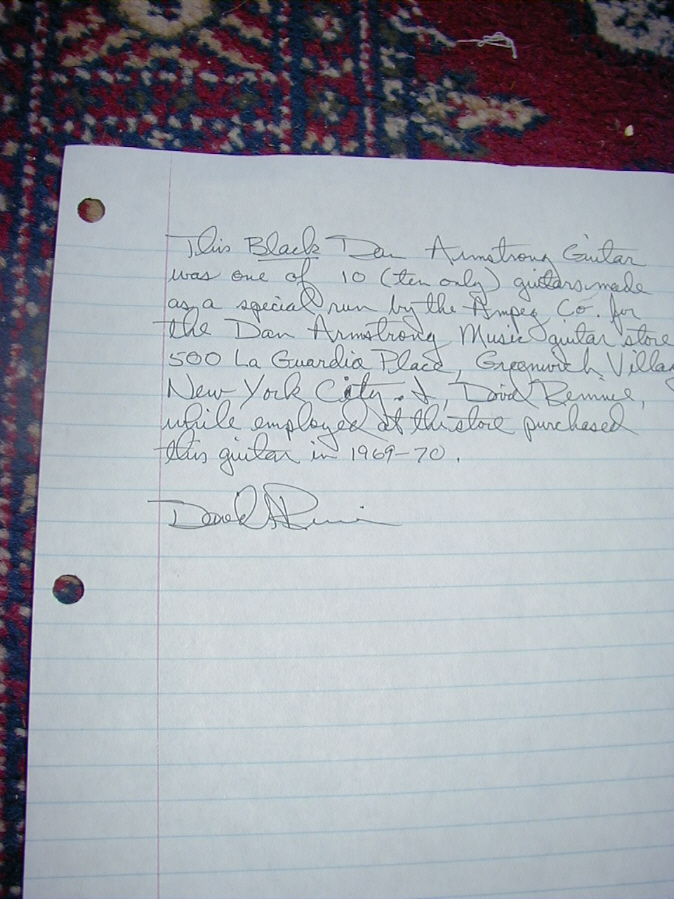 This Black Dan Armstrong Guitar
was one of 10 (ten only) guitars made
as a special run by the Ampeg Co. for
the Dan Armstrong Music guitar store
500 La Guardia Place, Greenwich Villag
New York City. I, David
while employed at the store purchased
this guitar in 1969-70.
David